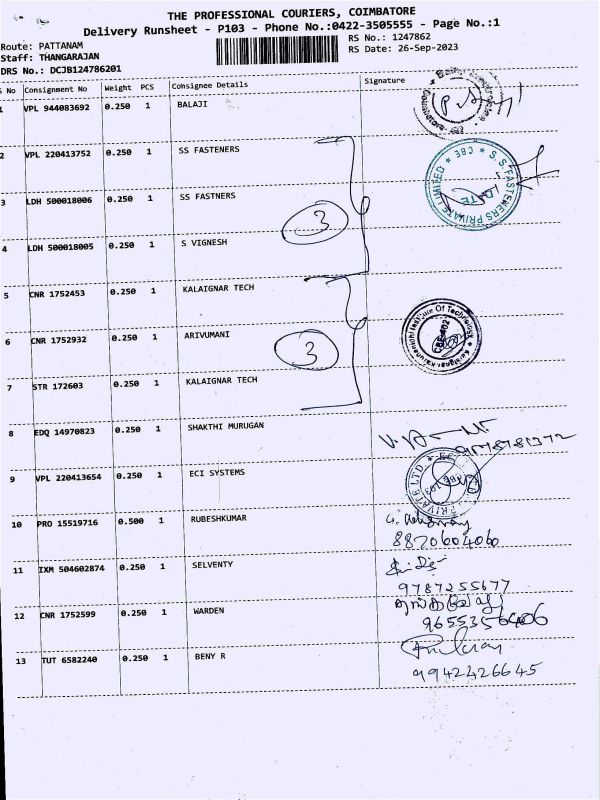 THE PROFESSIONAL COURIERS, COIMBATORE
Delivery Runsheet - P103 - Phone No.:0422-3505555 - Page No.:1
Route: PATTANAM
RS No.: 1247862
Staff: THANGARAJAN
RS Date: 26-Sep-2023
DRS No.: DCJB124786201
S No Consignment No Weight PCS Consignee Details Signature
1 VPL 944083692 0.250 1 BALAJI
2 VPL 220413752 0.250 1 SS FASTENERS
S.S. FASTENERS PRIVATE LIMITED * CBE *
DATE
3 LDH 500018006 0.250 1 SS FASTNERS
3
4 LDH 500018005 0.250 1 S VIGNESH
5 CNR 1752453 0.250 1 KALAIGNAR TECH
6 CNR 1752932 0.250 1 ARIVUMANI
3
Kalaignar Karunanidhi Institute Of Technology
CBE-402
7 STR 172603 0.250 1 KALAIGNAR TECH
8 EDQ 14970823 0.250 1 SHAKTHI MURUGAN
9 VPL 220413654 0.250 1 ECI SYSTEMS
PRIVATE LTD
10 PRO 15519716 0.500 1 RUBESHKUMAR
8870604060
11 IXM 504602874 0.250 1 SELVENTY
9787255677
12 CNR 1752599 0.250 1 WARDEN
13 TUT 6582240 0.250 1 BENY R
9942426645